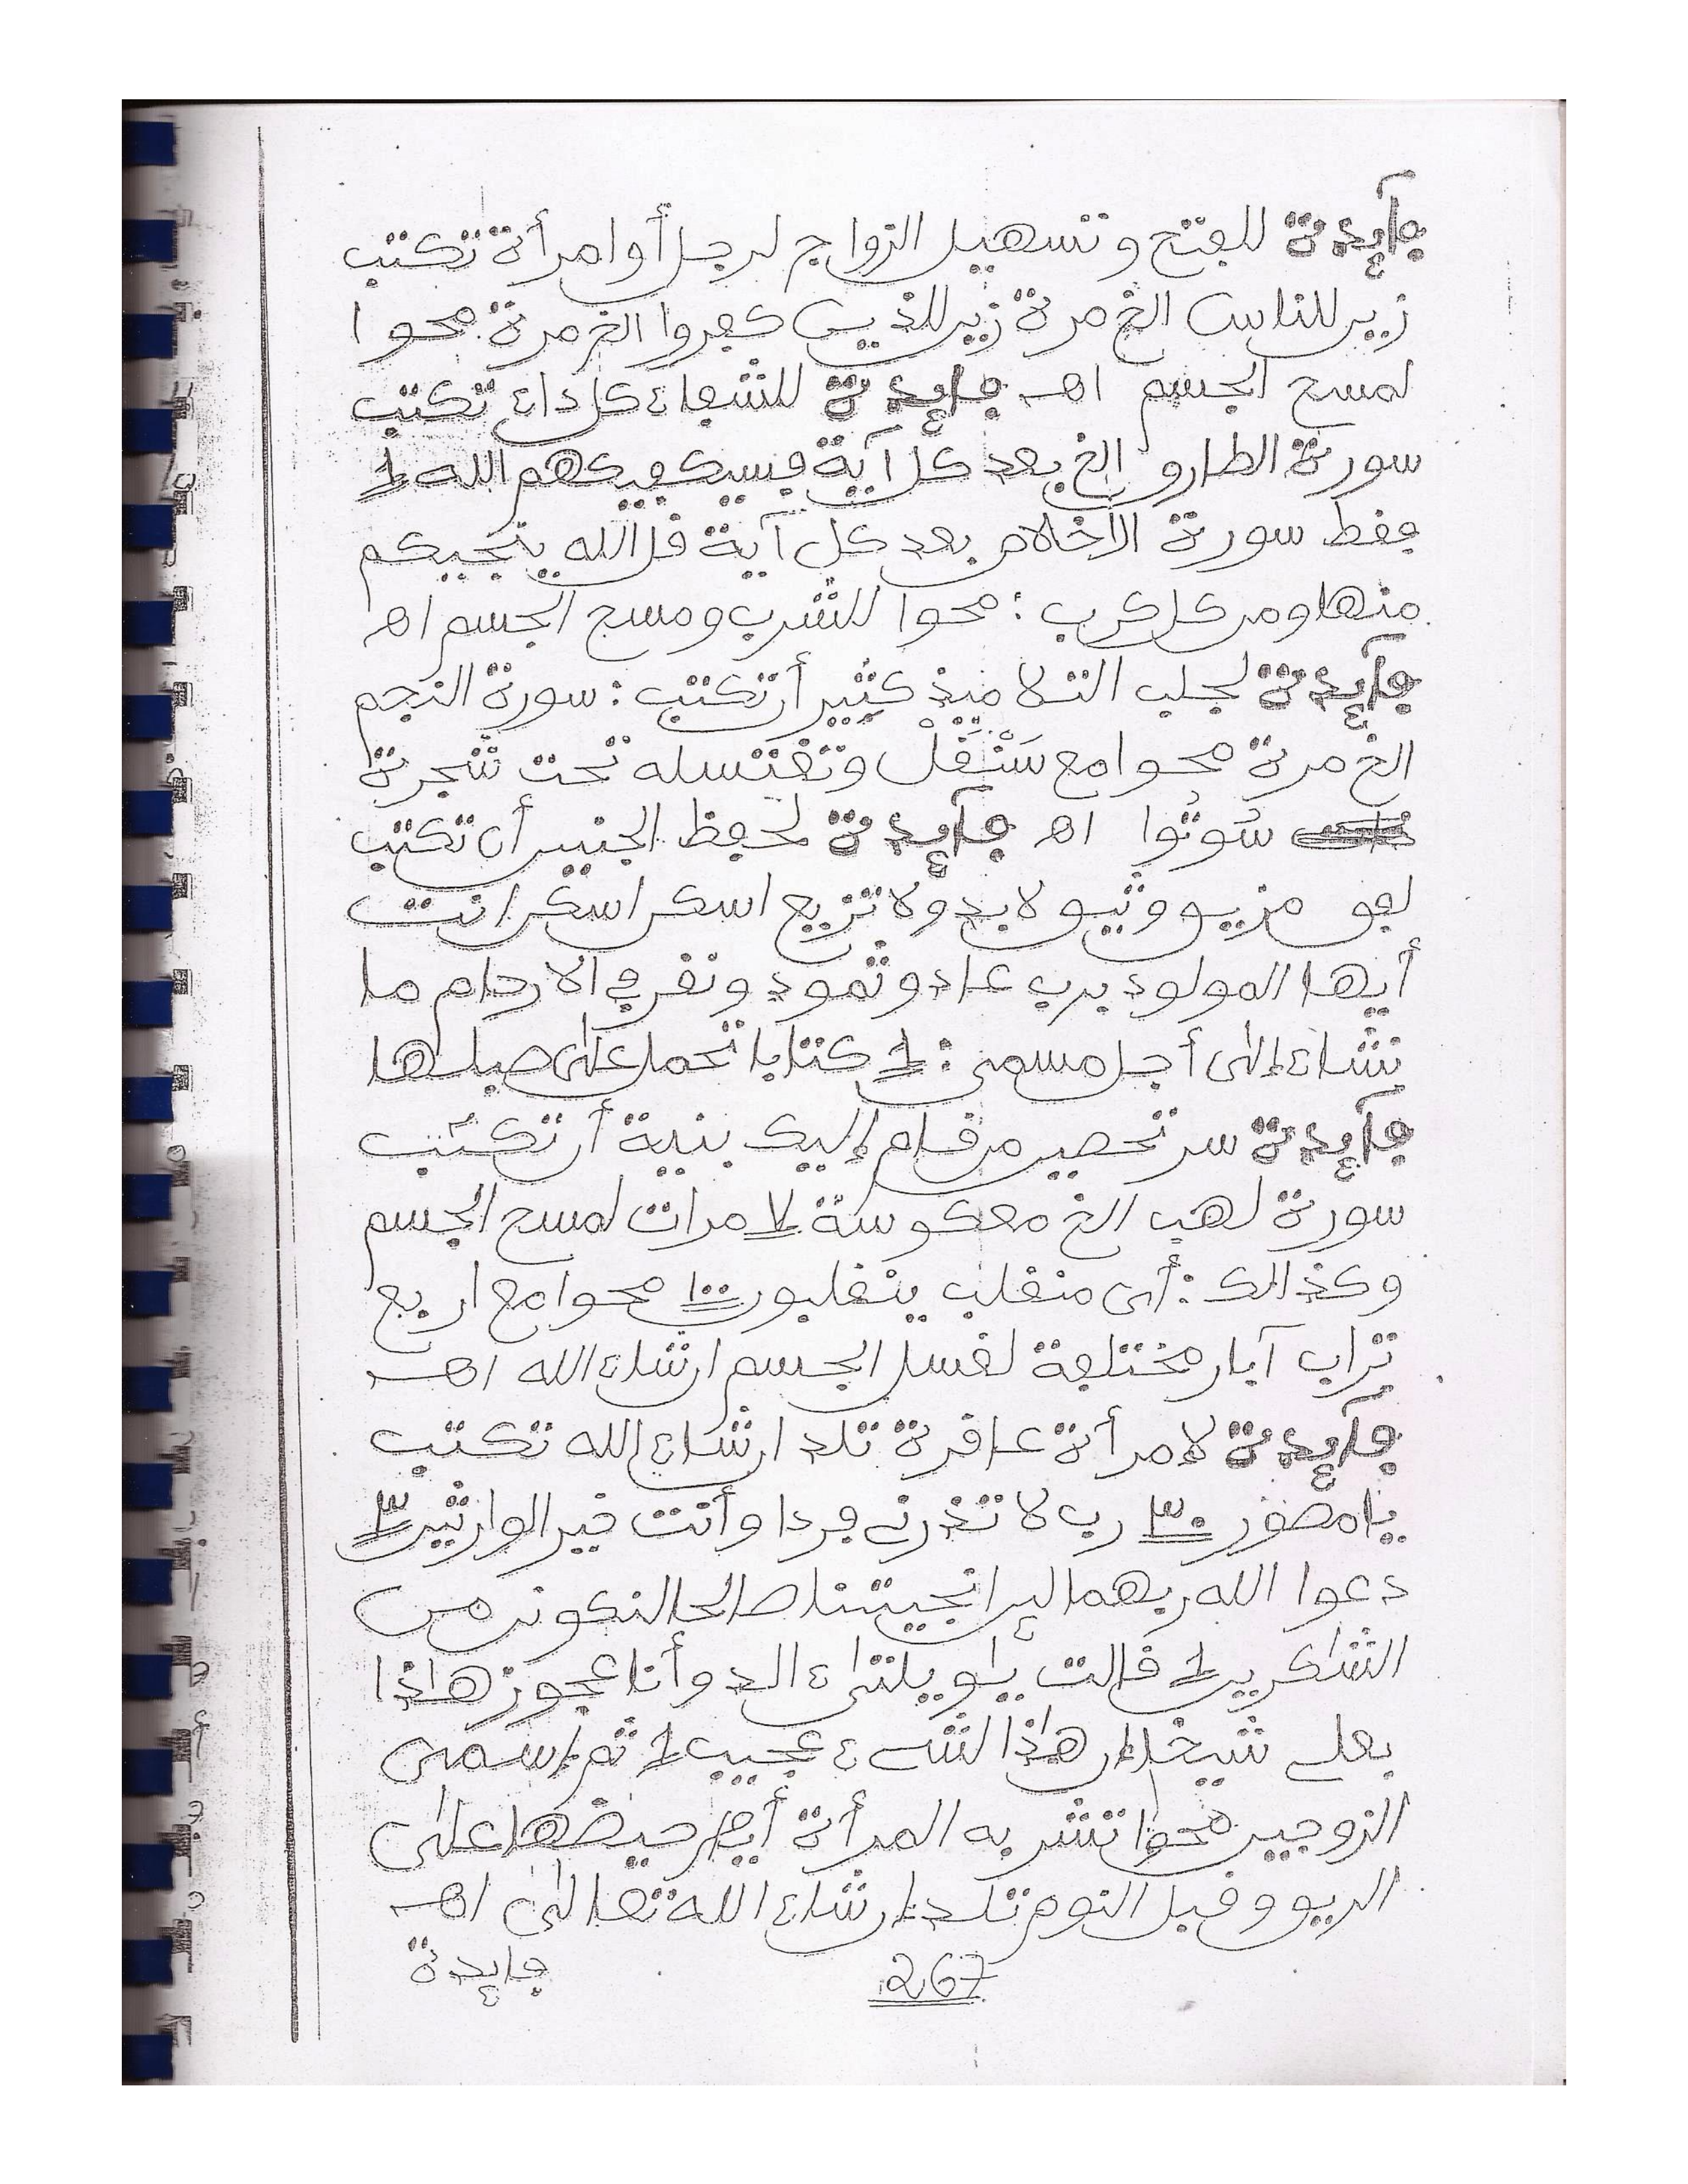 فآيدة للفتح وتسهيل الزواج لرجل أوامرأة تكتب
زين للناس الخ مرة زين للذين كفروا الخ مرة محوا
لمسح الجسم اهـ فآيدة للشفاء كل داء تكتب
سورة الطارق الخ بعد كل آية فسيكفيكهم الله ١
فقط سورة الاخلاص بعد كل آية قل الله ينجيكم
منها ومن كل كرب : محوا للشرب ومسح الجسم اهـ
فآيدة لجلب التلاميذ كثير أن تكتب : سورة النجم
الخ مرة محوا مع سَنْقَلْ وتغتسله تحت شجرة
سُوتُوا اهـ فآيدة لحفظ الجنين أن تكتب
لابد ولا تزيع اسكن اسكن انت
أيها المولود برب عاد وثمود ونقر في الارحام ما
نشاء إلى أجل مسمى : ١ كتابا تحمل على صلبها
فآيدة سر تحصين من قام إليك بنية أن تكتب
سورة لهب الخ معكوسة ٧ مرات لمسح الجسم
وكذالك : أى منقلب ينقلبون ١٠٠ محوا مع اربع
تراب آبار مختلفة لغسل الجسم ان شاء الله اهـ
فآيدة لامرأة عاقرة تلد ان شاء الله تكتب
يا مصور ٣٠ رب لا تذرني فردا وأنت خير الوارثين ٣
دعوا الله ربهما لين انجيتنا صالحا لنكونن من
الشاكرين ١ قالت ياويلتى ءالد وأنا عجوز هاذا
بعلي شيخا إن هاذا لشيء عجيب ١ ثم إسمى
الزوجين محوا تشربه المرأة أيام حيضها على
الريق وقبل النوم تلد إن شاء الله تعالى اهـ
267
فايدة